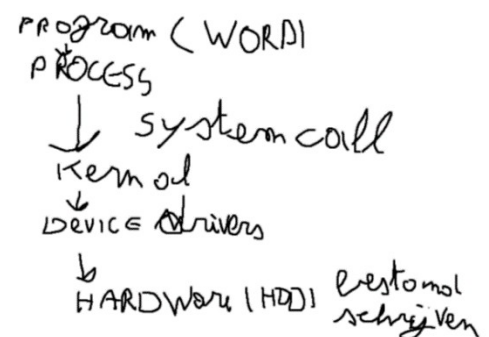 PROgram (WORD)
PROCESS
system call
Kernel
DEVICE drivers
HARDWare (HDD)
schrijven